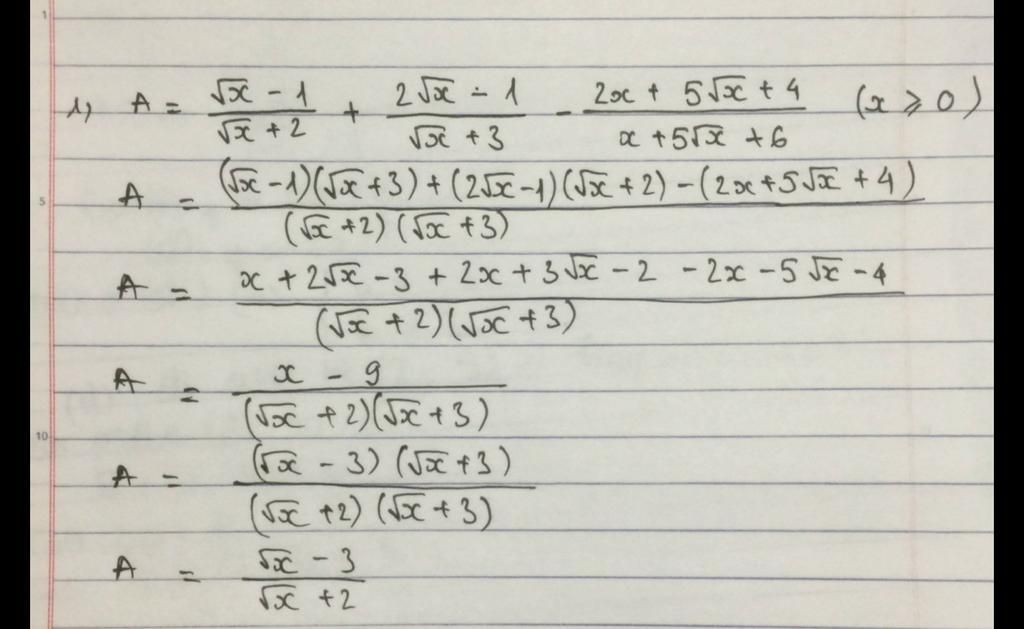 1
1, A = (√x - 1)/(√x + 2) + (2√x - 1)/(√x + 3) - (2x + 5√x + 4)/(x + 5√x + 6) (x ≥ 0)
5
A = ((√x - 1)(√x + 3) + (2√x - 1)(√x + 2) - (2x + 5√x + 4))/((√x + 2)(√x + 3))
A = (x + 2√x - 3 + 2x + 3√x - 2 - 2x - 5√x - 4)/((√x + 2)(√x + 3))
A = (x - 9)/((√x + 2)(√x + 3))
10
A = ((√x - 3)(√x + 3))/((√x + 2)(√x + 3))
A = (√x - 3)/(√x + 2)